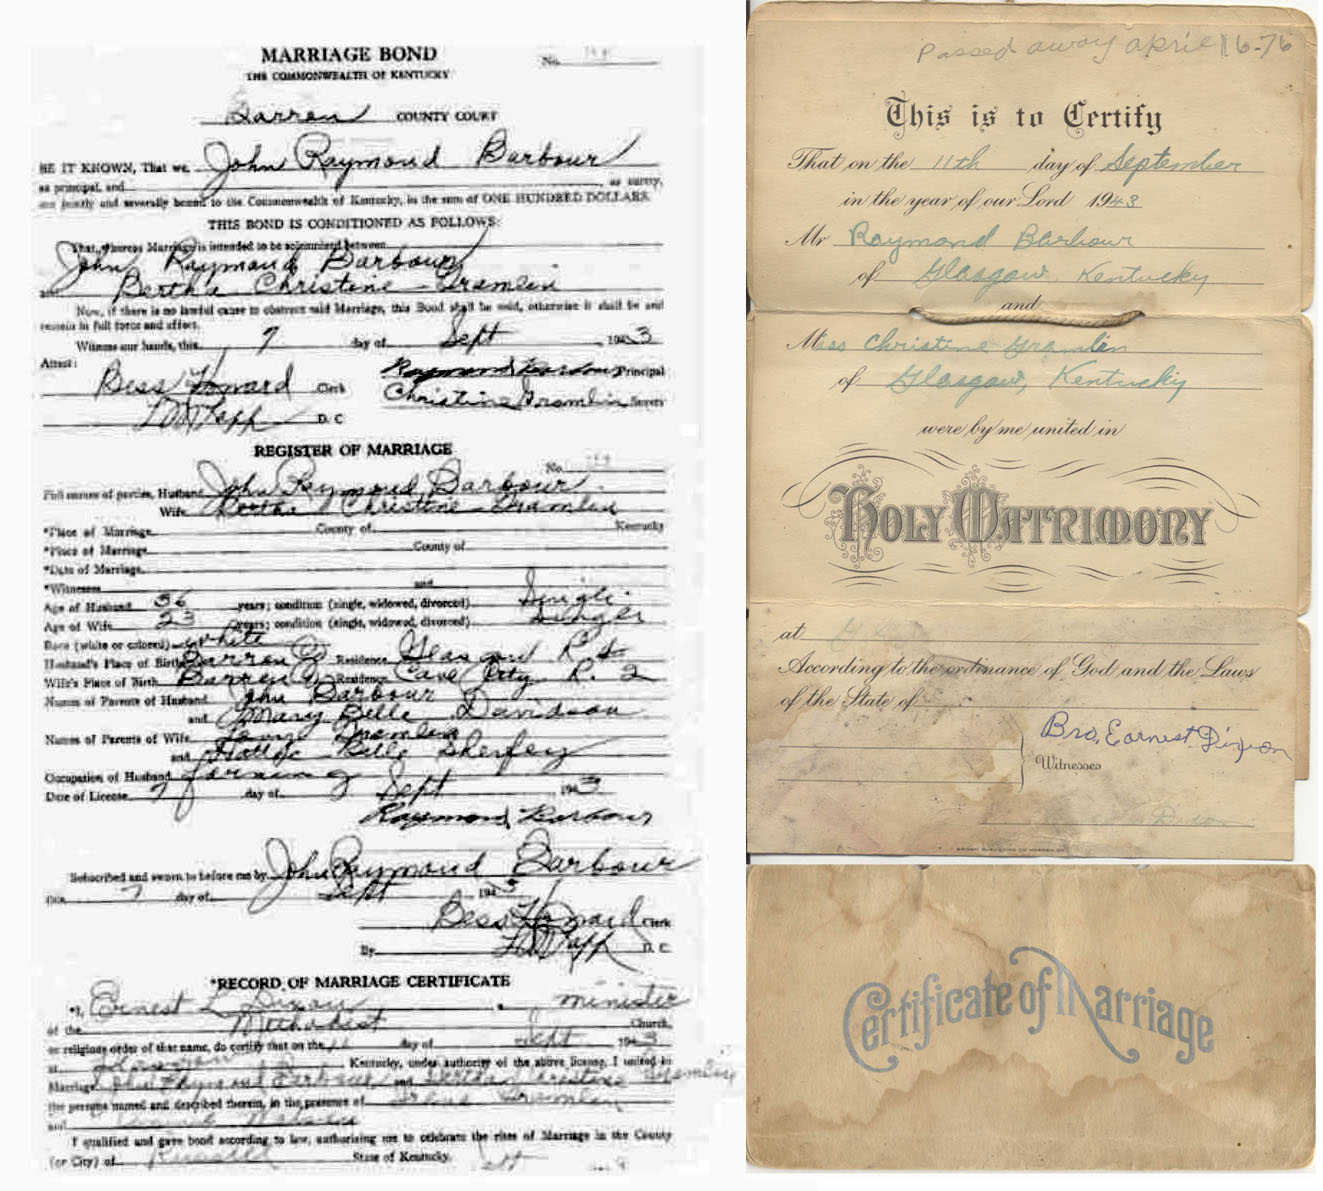 MARRIAGE BOND
No.
THE COMMONWEALTH OF KENTUCKY
Barren COUNTY COURT
BE IT KNOWN, That we, John Raymond Barbour
as principal, and as surety,
are jointly and severally bound to the Commonwealth of Kentucky, in the sum of ONE HUNDRED DOLLARS.
THIS BOND IS CONDITIONED AS FOLLOWS:
That, Whereas Marriage is intended to be solemnized between
John Raymond Barbour
and Bertha Christine Gramlin
Now, if there is no lawful cause to obstruct said Marriage, this Bond shall be void, otherwise it shall be and
remain in full force and effect.
Witness our hands, this 7 day of Sept 1943
Attest:
Bess Howard Clerk Raymond Barbour Principal
D. C. Christine Gramlin Surety
REGISTER OF MARRIAGE
No.
Full names of parties, Husband John Raymond Barbour
Wife Bertha Christine Gramlin
*Place of Marriage County of Kentucky
*Place of Marriage County of
*Date of Marriage
*Witnesses and
Age of Husband 36 years; condition (single, widowed, divorced) Single
Age of Wife 23 years; condition (single, widowed, divorced) Single
Race (white or colored) white
Husband's Place of Birth Barren Co Residence Glasgow R.
Wife's Place of Birth Barren Co Residence Cave City R. 2
Names of Parents of Husband John Barbour
and Mary Belle Davidson
Names of Parents of Wife Gramlin
and Belle Sherfey
Occupation of Husband farming
Date of License 7 day of Sept 1943
Raymond Barbour
Subscribed and sworn to before me by John Raymond Barbour
this 7 day of Sept 1943
Bess Howard Clerk
By D. C.
*RECORD OF MARRIAGE CERTIFICATE
*I, Ernest L Dixon, minister
of the Methodist Church,
or religious order of that name, do certify that on the day of Sept 1943
at Glasgow Kentucky, under authority of the above license, I united in
Marriage John Raymond Barbour and Bertha Christine Gramlin
the persons named and described therein, in the presence of Gramlin
and
I qualified and gave bond according to law, authorizing me to celebrate the rites of Marriage in the County
(or City) of State of Kentucky.
Passed away april 16-76
This is to Certify
That on the 11th day of September
in the year of our Lord 1943
Mr Raymond Barbour
of Glasgow, Kentucky
and
Miss Christine Gramlin
of Glasgow, Kentucky
were by me united in
HOLY MATRIMONY
at
According to the ordinance of God and the Laws
of the State of
Bro. Earnest Dixon
Witnesses
Dixon
Certificate of Marriage